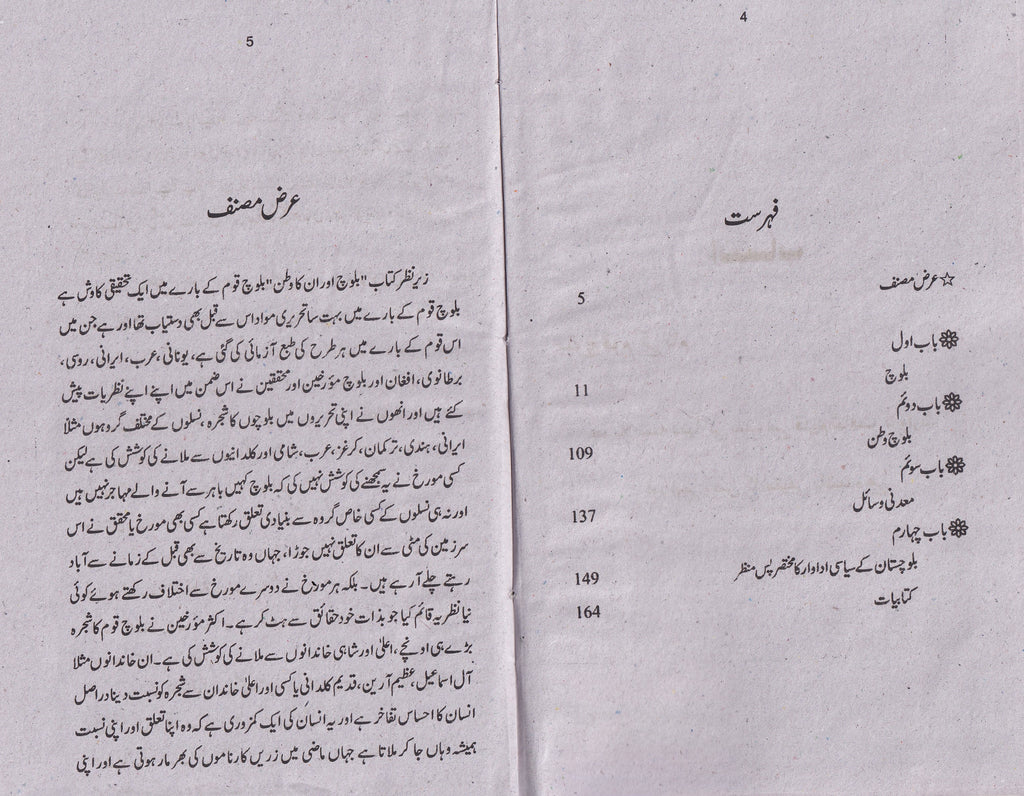 4
فہرست
☆ عرض مصنف
5
❁ باب اول
بلوچ
11
❁ باب دوئم
بلوچ وطن
109
❁ باب سوئم
معدنی وسائل
137
❁ باب چہارم
بلوچستان کے سیاسی اداوار کا مختصر پس منظر
149
کتابیات
164
5
عرض مصنف
زیر نظر کتاب "بلوچ اور ان کا وطن" بلوچ قوم کے بارے میں ایک تحقیقی کاوش ہے
بلوچ قوم کے بارے میں بہت سا تحریری مواد اس سے قبل بھی دستیاب تھا اور ہے جن میں
اس قوم کے بارے میں ہر طرح کی طبع آزمائی کی گئی ہے، یونانی، عرب، ایرانی، روسی،
برطانوی، افغان اور بلوچ مؤرخین اور محققین نے اس ضمن میں اپنے اپنے نظریات پیش
کئے ہیں اور انھوں نے اپنی تحریروں میں بلوچوں کا شجرہ، نسلوں کے مختلف گروہوں مثلاً
ایرانی، ہندی، ترکمان، کرغز، عرب، شامی اور کلدانیوں سے ملانے کی کوشش کی ہے لیکن
کسی مورخ نے یہ سمجھنے کی کوشش نہیں کی کہ بلوچ کہیں باہر سے آنے والے مہاجر نہیں ہیں
اور نہ ہی نسلوں کے کسی خاص گروہ سے بنیادی تعلق رکھتا ہے کسی بھی مورخ یا محقق نے اس
سرزمین کی مٹی سے ان کا تعلق نہیں جوڑا، جہاں وہ تاریخ سے بھی قبل کے زمانے سے آباد
رہتے چلے آ رہے ہیں۔ بلکہ ہر مورخ نے دوسرے مورخ سے اختلاف رکھتے ہوئے کوئی
نیا نظریہ قائم کیا جو بذات خود حقائق سے ہٹ کر ہے۔ اکثر مؤرخین نے بلوچ قوم کا شجرہ
بڑے ہی اونچے، اعلیٰ اور شاہی خاندانوں سے ملانے کی کوشش کی ہے۔ ان خاندانوں مثلا
آل اسماعیل، عظیم آرین، قدیم کلدانی یا کسی اور اعلیٰ خاندان سے شجرہ کو نسبت دینا دراصل
انسان کا احساس تفاخر ہے اور یہ انسان کی ایک کمزوری ہے کہ وہ اپنا تعلق اور اپنی نسبت
ہمیشہ وہاں جا کر ملاتا ہے جہاں ماضی میں زریں کارناموں کی بھرمار ہوتی ہے اور اپنی